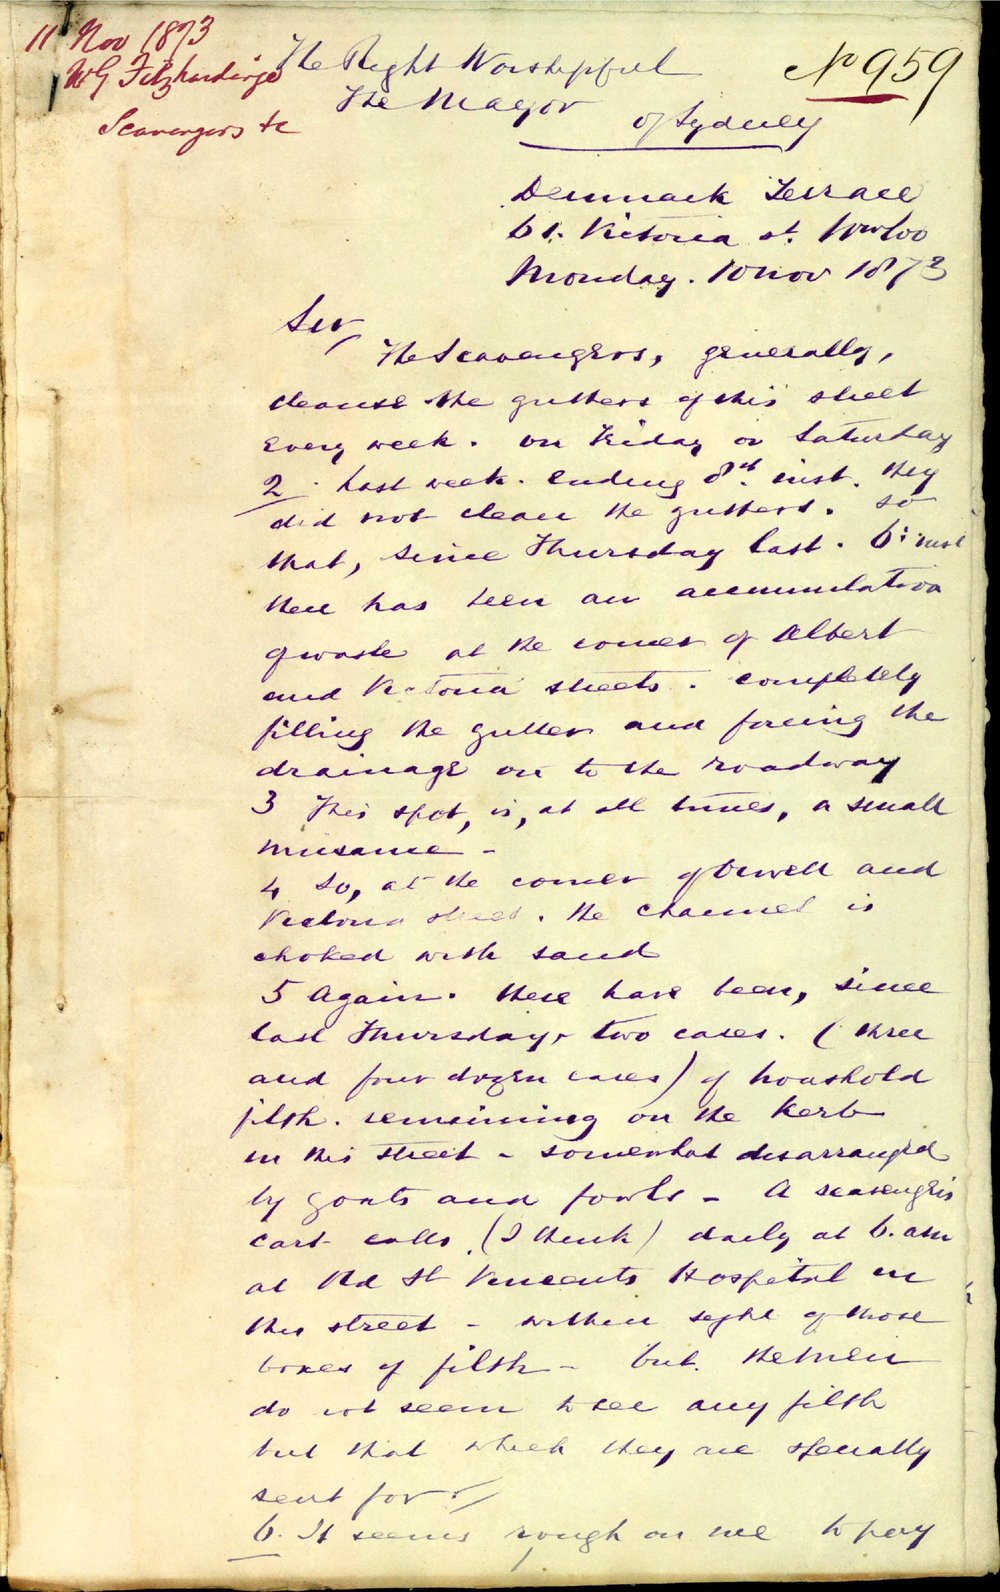 11 Nov 1873
W G Fitzhardinge
Scavengers &c
The Right Worshipful
The Mayor
of Sydney
No 959
Denmark Terrace
61. Victoria st. Wooloo
Monday. 10 Nov 1873
Sir,
The Scavengers, generally,
cleanse the gutters of this street
every week. on Friday or Saturday
2. Last week. ending 8th. inst. they
did not clean the gutters. so
that, since Thursday last. 6: inst
there has been an accumulation
of waste at the corner of Albert
and Victoria streets. completely
filling the gutter and forcing the
drainage on to the roadway
3 This spot, is, at all times, a small
nuisance -
4 So, at the corner of Orwell and
Victoria street. the channel is
choked with sand
5 Again. there have been, since
last Thursday, two cases. (three
and four dozen cases) of houshold
filth. remaining on the kerb
in this street - somewhat disarranged
by goats and fowls - A scavengers
cart calls (I think) daily at 6. am
at the St Vincents Hospital in
this street - within sight of those
boxes of filth - but the men
do not seem to see any filth
but that which they are specially
sent for.
6. It seems rough on me to pay